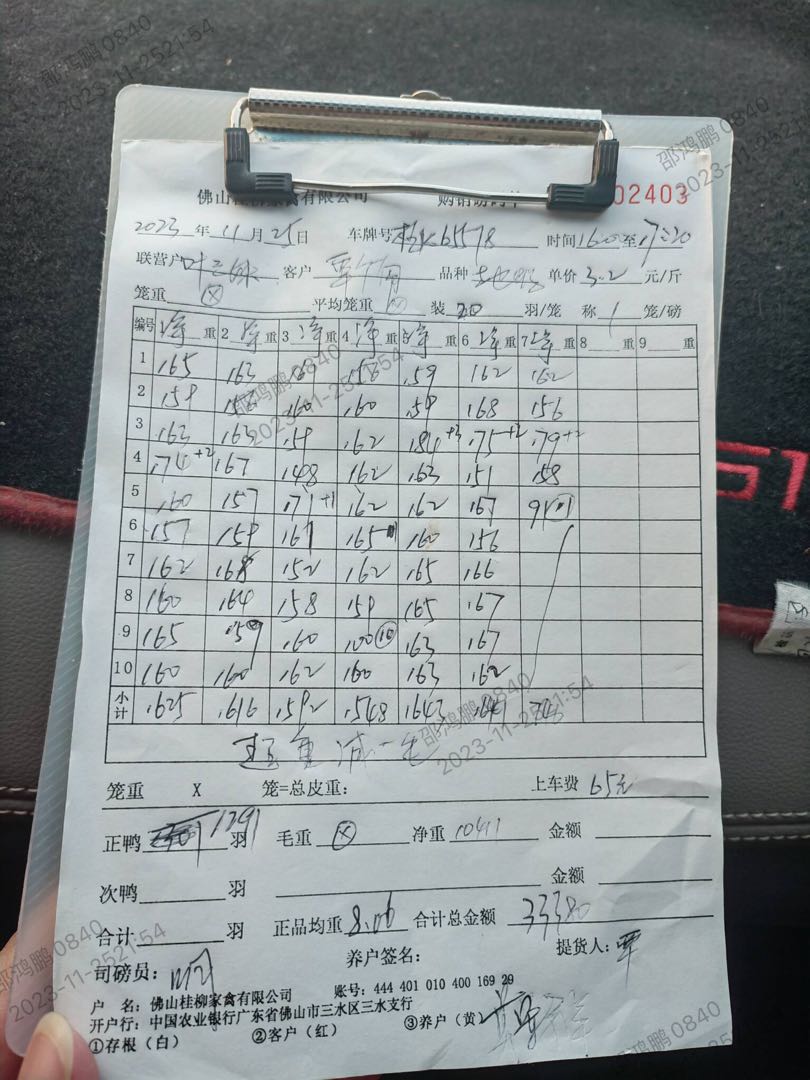 佛山桂柳家禽有限公司 购销磅码单 02403
2023 年 11 月 25 日 车牌号 65578 时间 16:00 至 17:20
联营户 叶 客户 覃 品种 单价 3.2 元/斤
笼重 ⊗ 平均笼重 装 20 羽/笼 称 1 笼/磅
编号 净重 2 净重 3 净重 4 净重 5 净重 6 净重 7 净重 8 重 9 重
1 165 163 158 159 162 162
2 159 158 160 160 159 168 156
3 163 163 159 162 184+3 175+2 179+2
4 174+2 167 148 162 163 151 158
5 160 157 171+1 162 162 167 91
6 157 159 161 165 160 156
7 162 168 152 162 165 166
8 160 164 158 159 165 167
9 165 159 160 100⑩ 163 167
10 160 160 162 160 163 162
小计 1625 1616 1592 1548 1643 1641
超重减一毛
笼重 X 笼=总皮重: 上车费 65元
正鸭 1291 羽 毛重 ⊗ 净重 10411 金额
次鸭 羽 金额
合计 羽 正品均重 8.06 合计总金额 33380
司磅员: 养户签名: 提货人: 覃
户 名: 佛山桂柳家禽有限公司 账号: 444 401 010 400 169 29
开户行: 中国农业银行广东省佛山市三水区三水支行
①存根（白） ②客户（红） ③养户（黄）
邵鸿鹏 0840
2023-11-2521:54
邵鸿鹏 0840
2023-11-2521:54
邵鸿鹏 0840
2023-11-2521:54
邵鸿鹏 0840
2023-11-2521:54
邵鸿鹏 0840
2023-11-2521:54
邵鸿鹏 0840